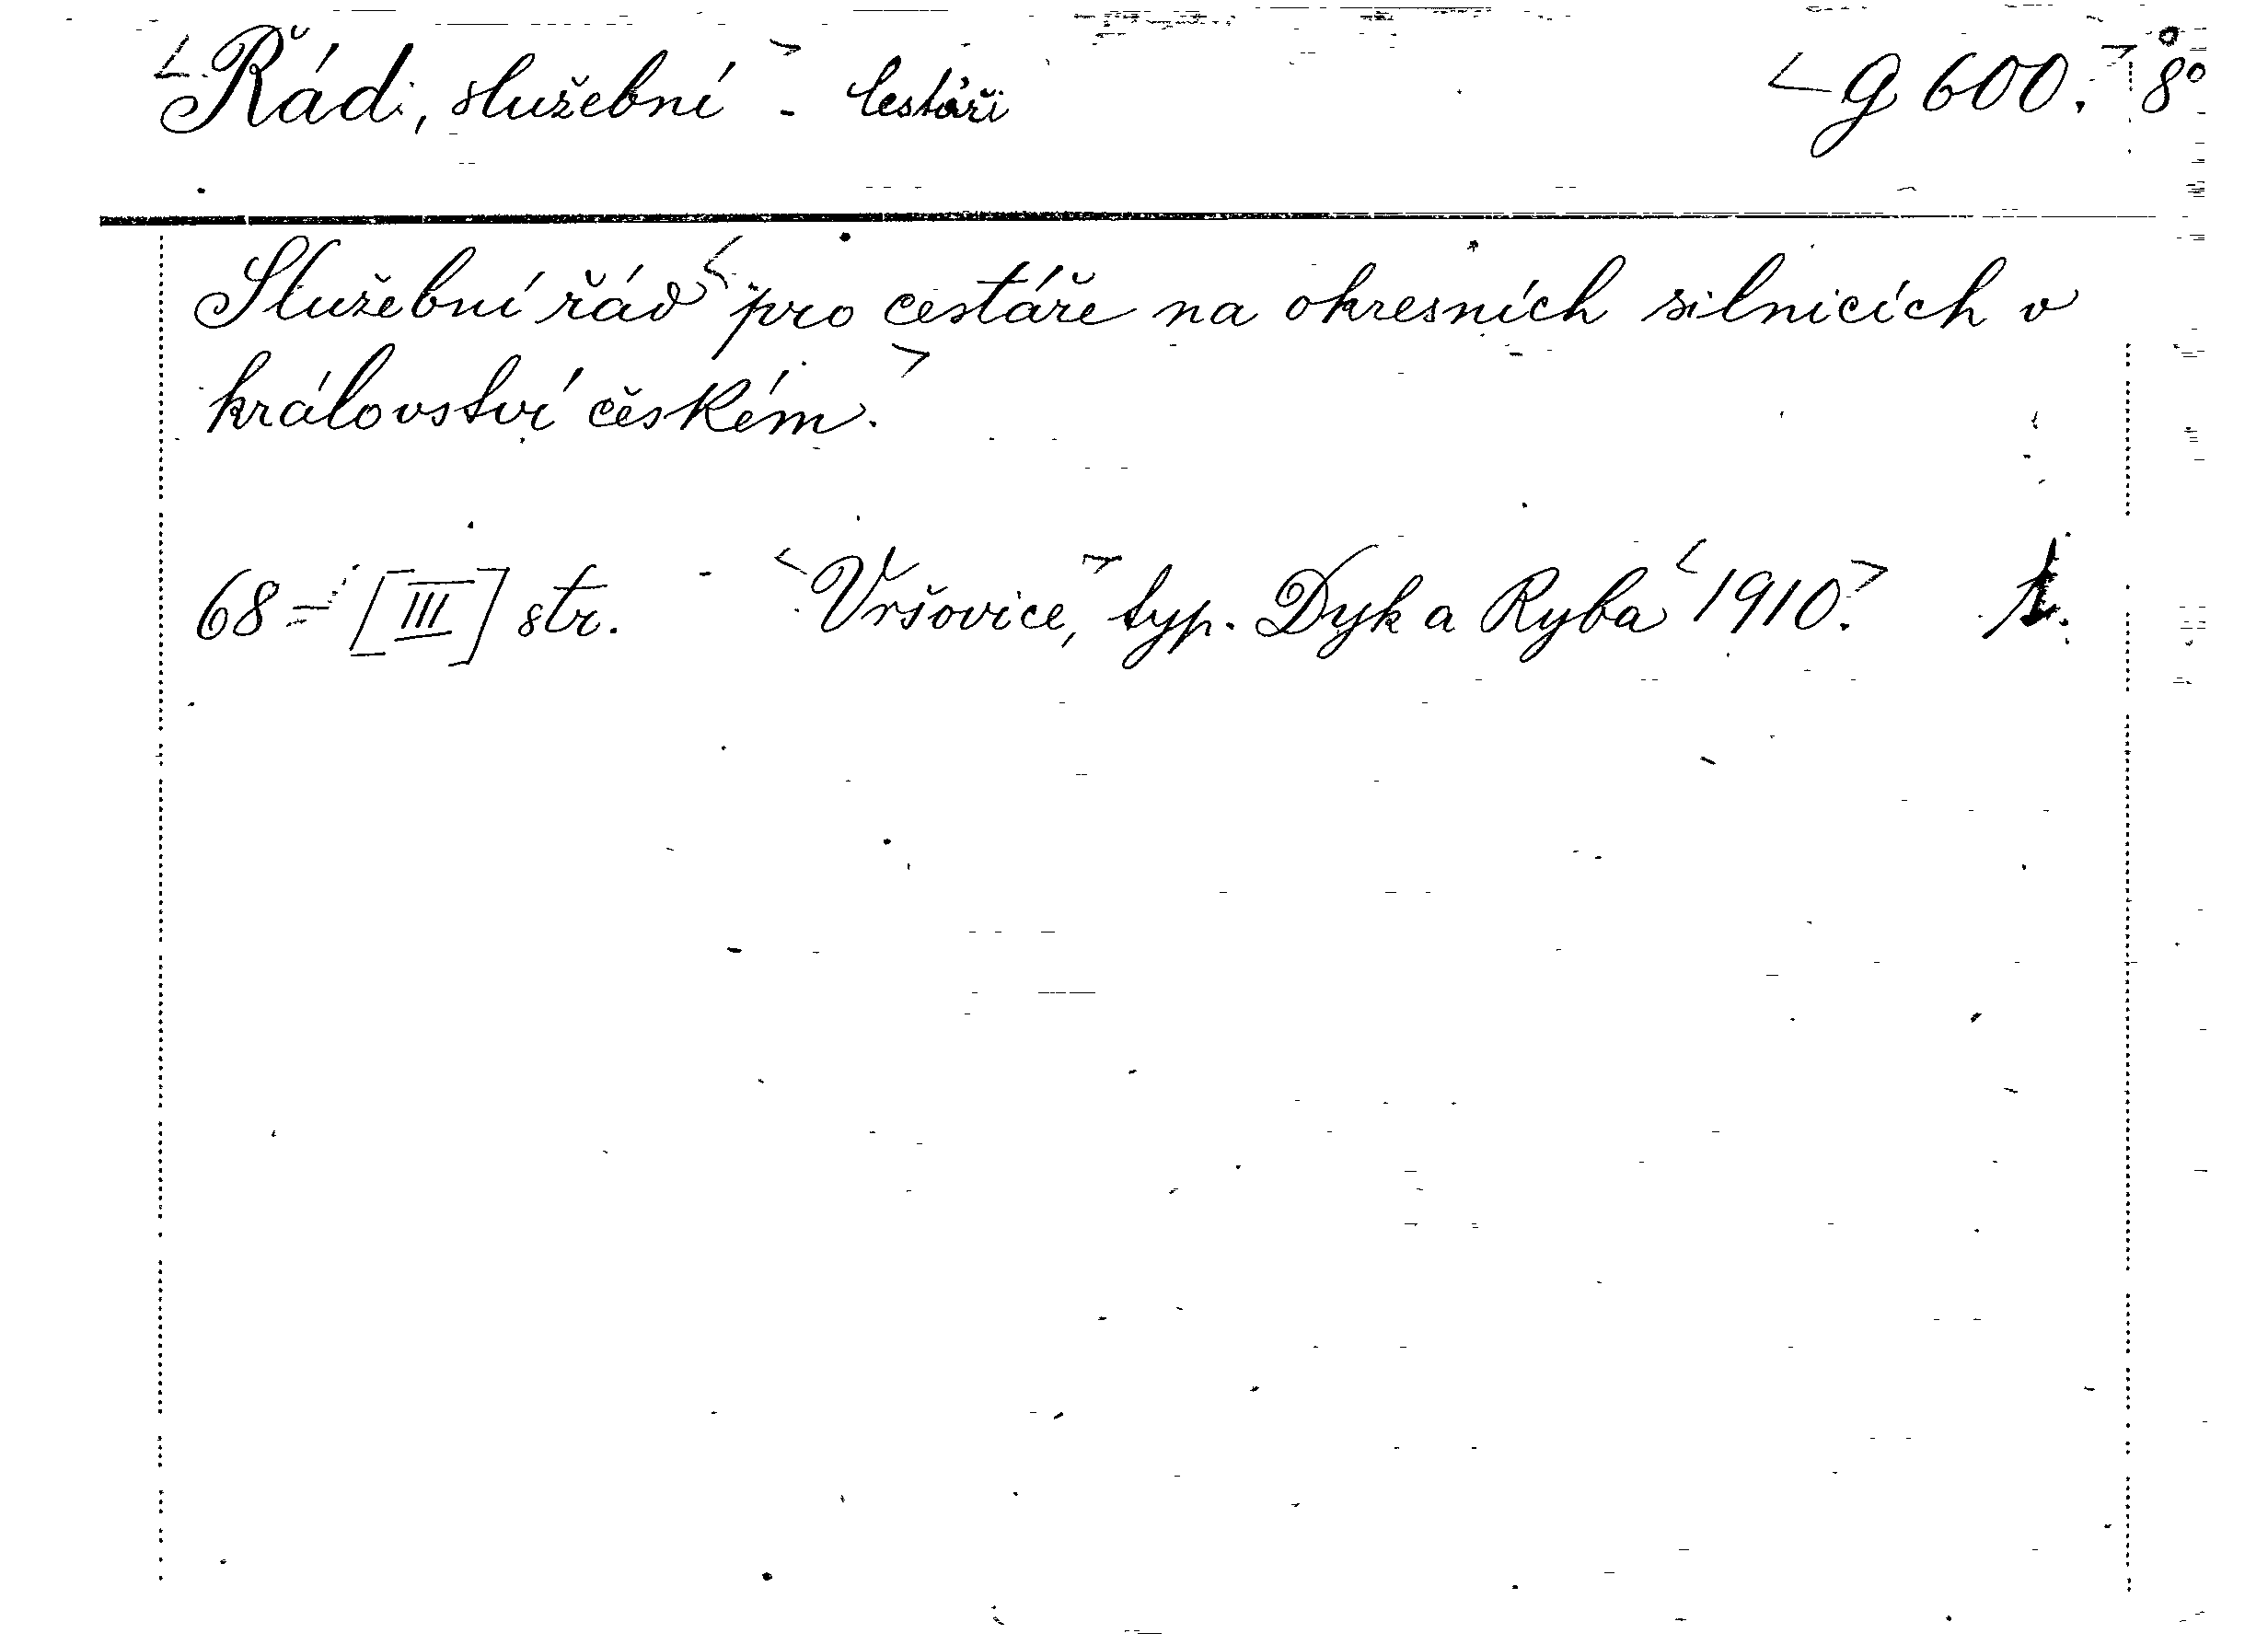 <Řád, služební> - Cestáři <G 600.> 8°
Služební řád <pro cestáře na okresních silnicích v
království českém.>
68 - [III] str. - <Vršovice,> typ. Dyk a Ryba <1910.>